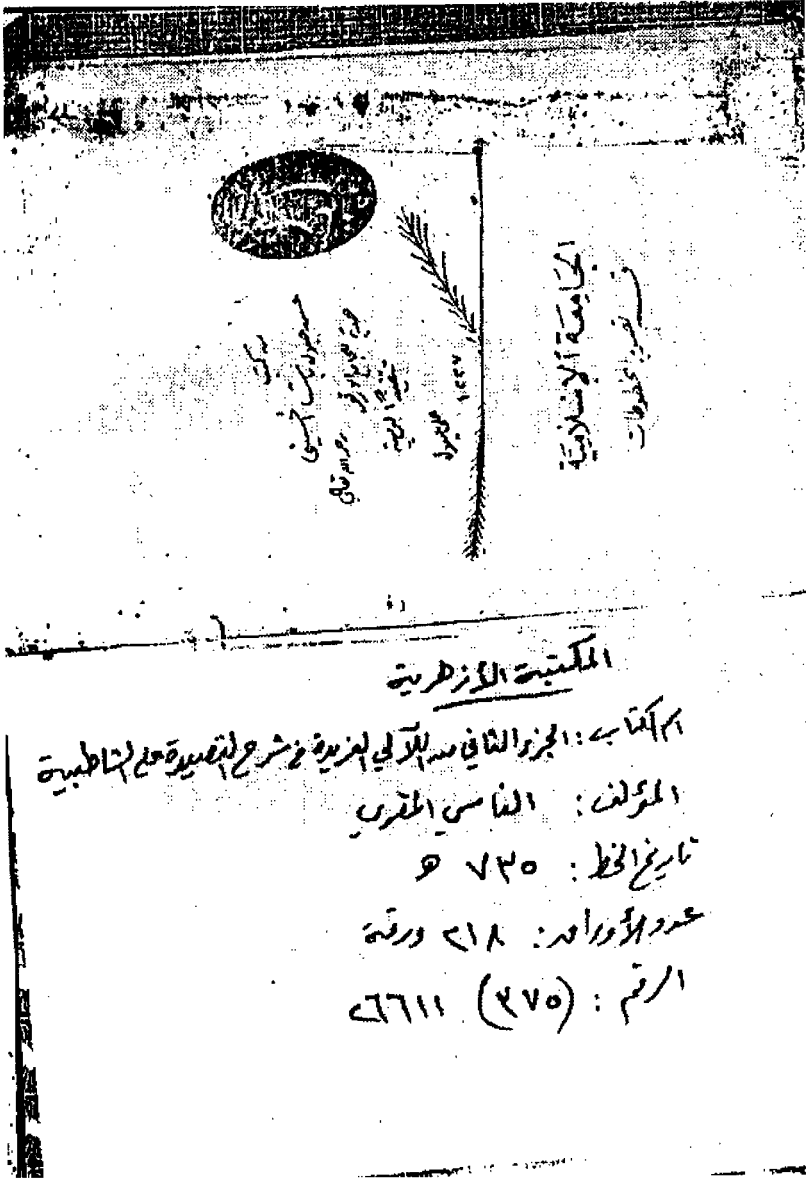 الجامعة الإسلامية
قسم تصوير المخطوطات
من كتب
حسن جلال باشا الحسيني
المكتبة الأزهرية
اسم الكتاب: الجزء الثاني من اللآلي الفريدة في شرح القصيدة على الشاطبية
المؤلف: الفاسي المقري
تاريخ الخط: ٧٣٥ ه
عدد الأوراق: ٢١٨ ورقة
الرقم: (٣٧٥) ٢٦٦١١